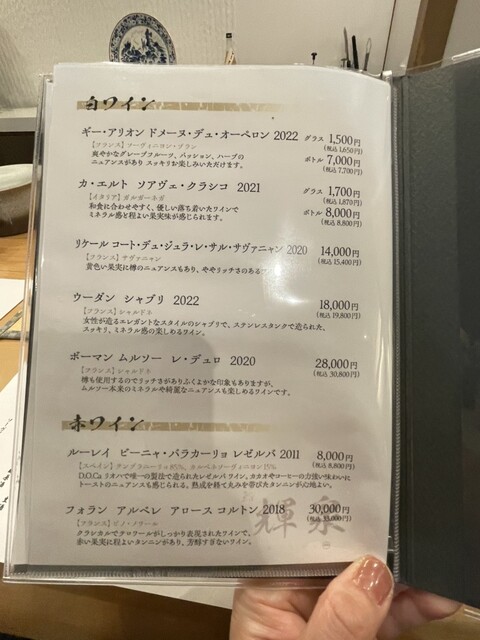 白ワイン
ギー・アリオン ドメーヌ・デュ・オーペロン 2022 グラス 1,500円
(税込 1,650円)
【フランス】ソーヴィニヨン・ブラン
爽やかなグレープフルーツ、パッション、ハーブの
ニュアンスがあり スッキリお楽しみいただけます。
ボトル 7,000円
(税込 7,700円)
カ・エルト ソアヴェ・クラシコ 2021 グラス 1,700円
(税込 1,870円)
【イタリア】ガルガーネガ
和食に合わせやすく、優しい落ち着いたワインで
ミネラル感と程よい果実味が感じられます。
ボトル 8,000円
(税込 8,800円)
リケール コート・デュ・ジュラ・レ・サル・サヴァニャン 2020 14,000円
(税込 15,400円)
【フランス】サヴァニャン
黄色い果実に樽のニュアンスもあり、ややリッチさのある
ウーダン シャブリ 2022 18,000円
(税込 19,800円)
【フランス】シャルドネ
女性が造るエレガントなスタイルのシャブリで、ステンレスタンクで造られた、
スッキリ、ミネラル感の楽しめるワイン。
ボーマン ムルソー レ・デュロ 2020 28,000円
(税込 30,800円)
【フランス】シャルドネ
樽も使用するのでリッチさがありふくよかな印象もありますが、
ムルソー本来のミネラルや綺麗なニュアンスも楽しめるワインです。
赤ワイン
ルーレイ ビーニャ・バラカーリョ レゼルバ 2011 8,000円
(税込 8,800円)
【スペイン】テンプラニーリョ85%、カベルネソーヴィニヨン15%
D.O.Ca リオハで唯一の製法で造られたレゼルバ ワイン。カカオやコーヒーの力強い味わいに
トーストのニュアンスも感じられる。熟成を経て丸みを帯びたタンニンが心地よい。
フォラン アルベレ アロース コルトン 2018 30,000円
(税込 33,000円)
【フランス】ピノ・ノワール
クラシカルでテロワールがしっかり表現されたワインで、
赤い果実に程よいタンニンがあり、芳醇すぎないワイン。
輝 泉